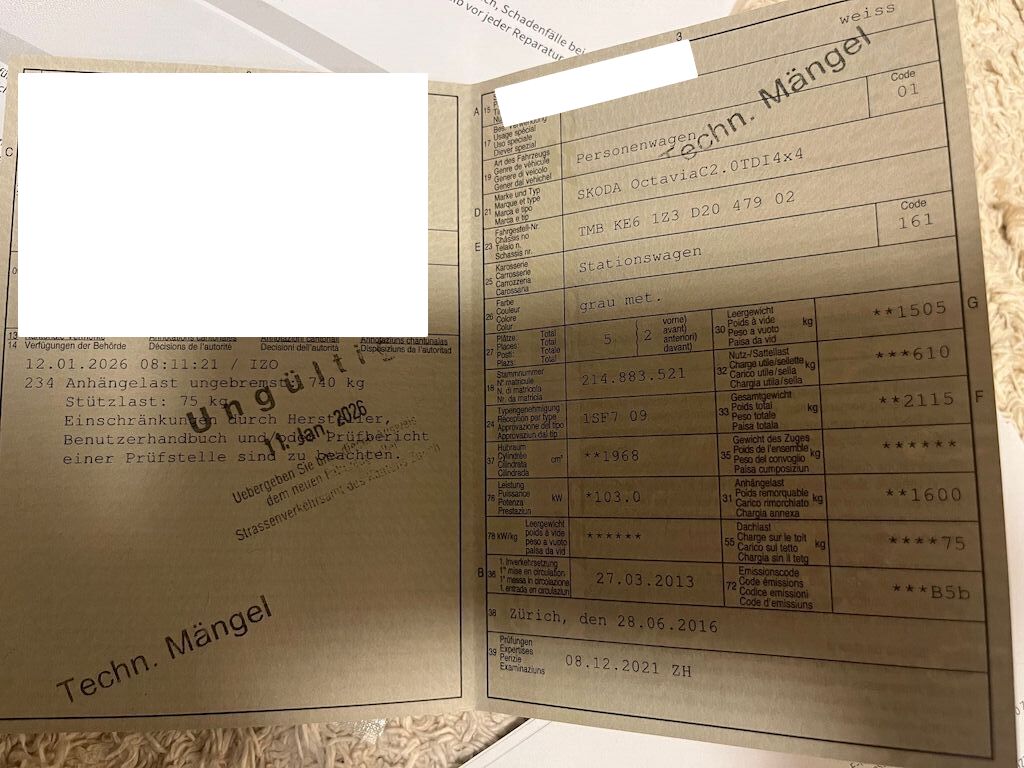 ch, Schadenfälle bei
vor jeder Reparatur
C
13
14 Verfügungen der Behörde Décisions de l'autorité Decisioni dell'autorità Disposiziuns da l'autoritad
12.01.2026 08:11:21 / IZO
234 Anhängelast ungebremst: 740 kg
Stützlast: 75 kg
Einschränkungen durch Hersteller,
Benutzerhandbuch und/oder Prüfbericht
einer Prüfstelle sind zu beachten.
Ungültig
Jan. 2026
Uebergeben Sie
dem neuen
Strassenverkehrsamt des Kantons Zürich
Techn. Mängel
3
weiss
A 15
Techn. Mängel
17 Bes. Verwendung
Usage spécial
Uso speciale
Diever spezial
19 Art des Fahrzeugs
Genre de véhicule
Genere di veicolo
Gener dal vehichel
Personenwagen
Code
01
D 21 Marke und Typ
Marque et type
Marca e tipo
Marca e tip
SKODA OctaviaC2.0TDI4x4
E 23 Fahrgestell-Nr.
Châssis no
Telaio n.
Schassis nr.
TMB KE6 1Z3 D20 479 02
25 Karosserie
Carrosserie
Carrozzeria
Carossaria
Stationswagen
Code
161
26 Farbe
Couleur
Colore
Colur
grau met.
27 Plätze: Total
Places Total
Posti: Totale
Plazs: Total
5
2
vorne)
avant)
anteriori)
davant)
30 Leergewicht
Poids à vide
Peso a vuoto
Paisa da vid
kg
**1505
G
18 Stammnummer
N° matricule
N. di matricola
Nr. da matricla
214.883.521
32 Nutz-/Sattellast
Charge utile/sellette
Carico utile/sella
Chargia utila/sella
kg
***610
24 Typengenehmigung
Réception par type
Approvazione del tipo
Approvaziun dal tip
1SF7 09
33 Gesamtgewicht
Poids total
Peso totale
Paisa totala
kg
**2115
F
37 Hubraum
Cylindrée
Cilindrata
Cilindrada
cm³
**1968
35 Gewicht des Zuges
Poids de l'ensemble
Peso del convoglio
Paisa cumposiziun
kg
******
76 Leistung
Puissance
Potenza
Prestaziun
kW
*103.0
31 Anhängelast
Poids remorquable
Carico rimorchiato
Chargia annexa
kg
**1600
78 kW/kg
Leergewicht
poids à vide
peso a vuoto
paisa da vid
******
55 Dachlast
Charge sur le toit
Carico sul tetto
Chargia sin il tetg
kg
****75
B 36 1. Inverkehrsetzung
1re mise en circulation
1a messa in circolazione
1. entrada en circulaziun
27.03.2013
72 Emissionscode
Code émissions
Codice emissioni
Code d'emissiuns
***B5b
38 Zürich, den 28.06.2016
39 Prüfungen
Expertises
Perizie
Examinaziuns
08.12.2021 ZH